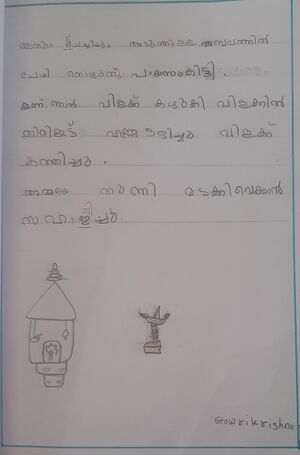 ഞാനും ചേച്ചിയും അടുത്തുള്ള അമ്പലത്തിൽ
പോയി തൊഴുതു പായസംകിട്ടി
ഞാൻ വിളക്ക് കഴുകി വിളക്കിൽ
തിരിഇട്ട് എണ്ണ ഒഴിച്ചു വിളക്ക്
കത്തിച്ചു .
അമ്മയെ തുണി മടക്കിവെക്കാൻ
സഹായിച്ചു
Gowrikrishna